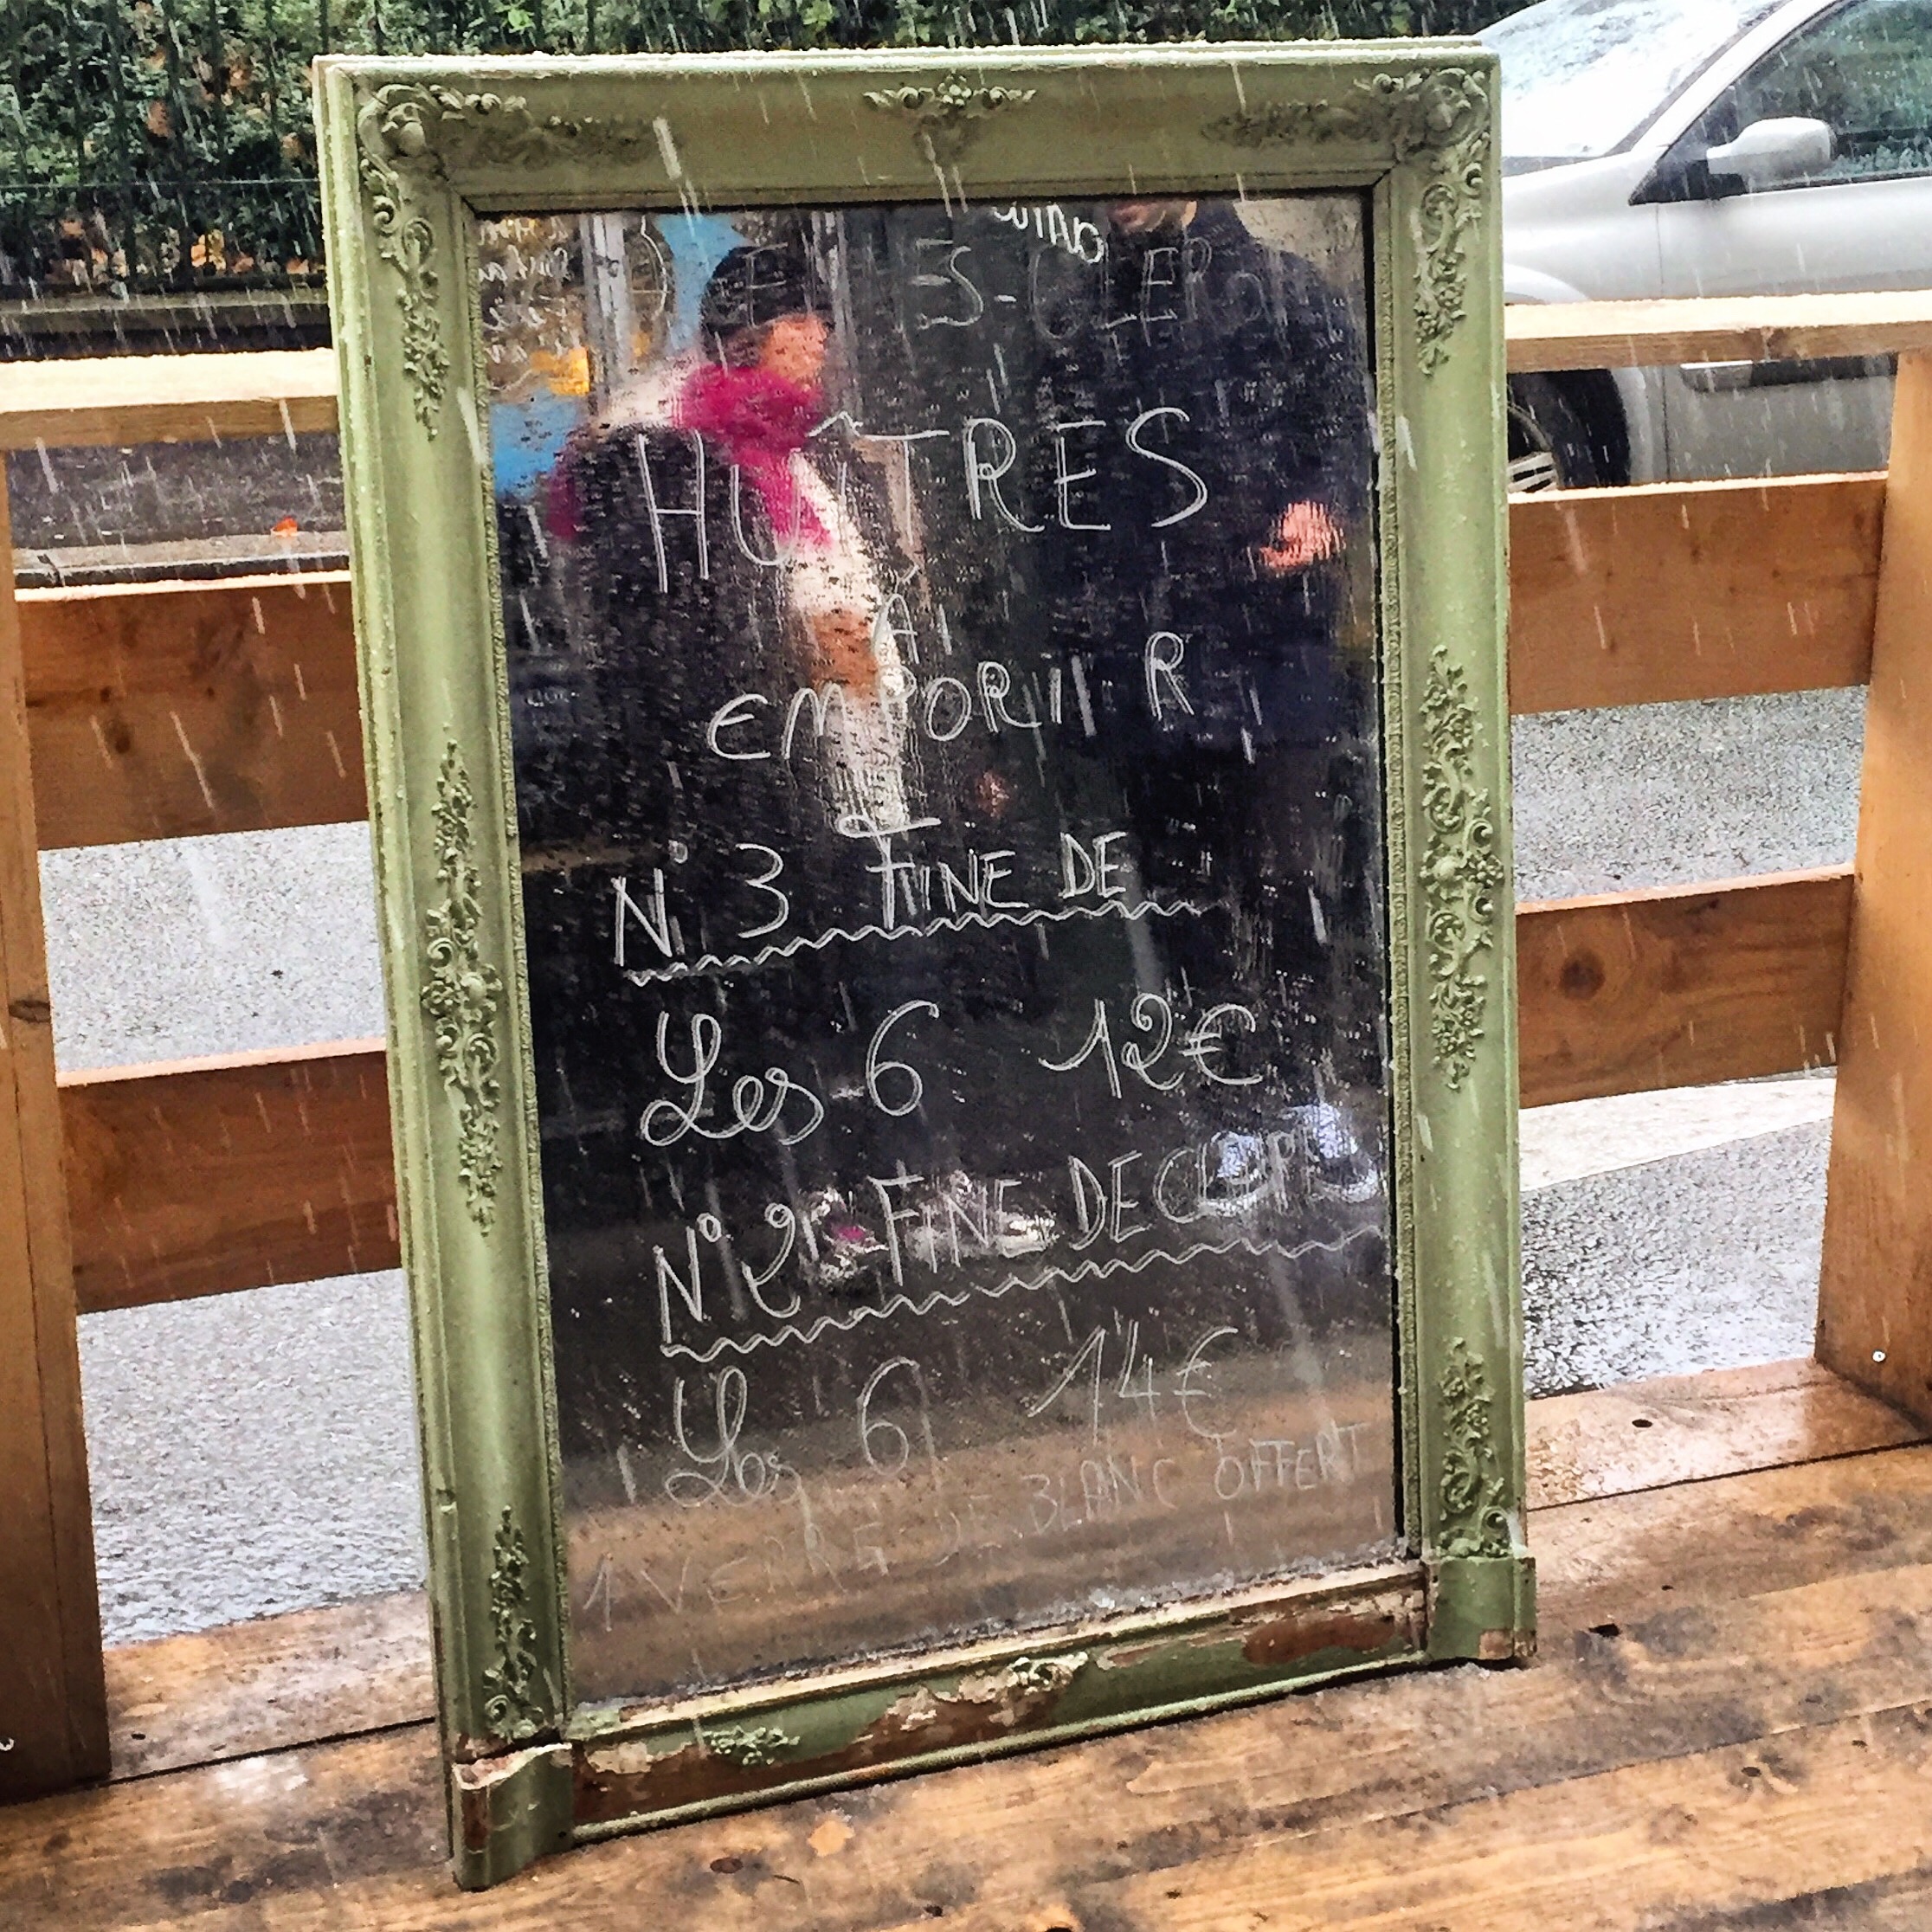 HUÎTRES
À
EMPORTER
N° 3 FINE DE
Les 6 12€
N° 2 FINE DE CLAIRE
Les 6 14€
1 VERRE DE BLANC OFFERT